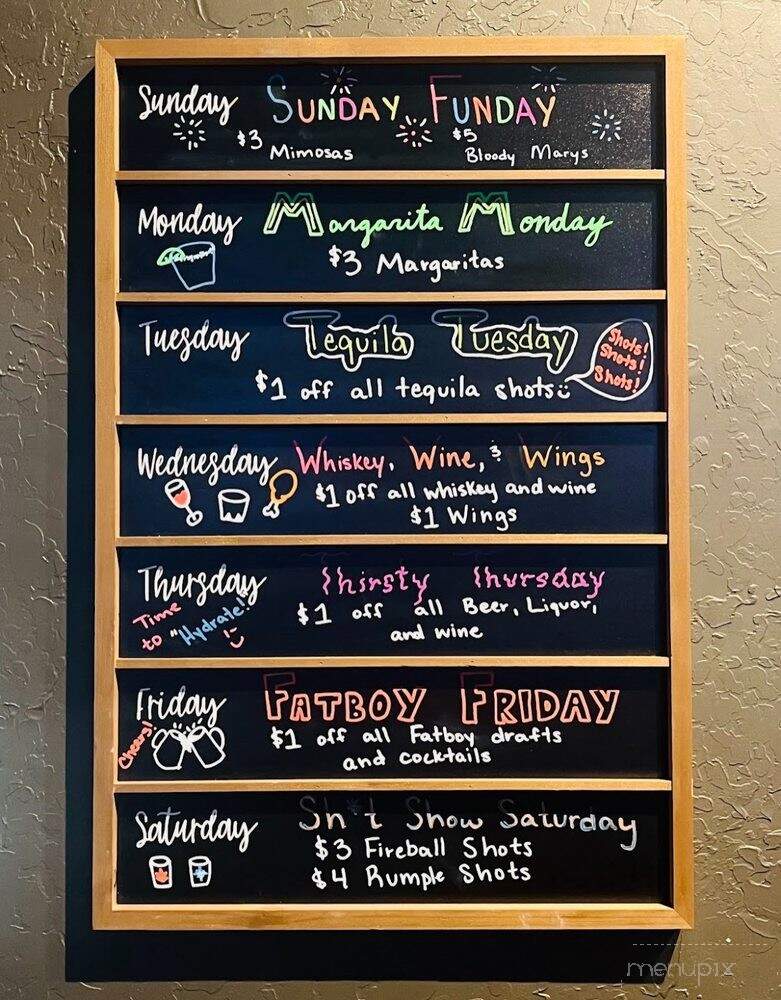 Sunday SUNDAY FUNDAY
$3 Mimosas $5 Bloody Marys
Monday Margarita Monday
$3 Margaritas
Tuesday Tequila Tuesday
Shots!
Shots!
Shots!
$1 off all tequila shots
Wednesday Whiskey, Wine, & Wings
$1 off all whiskey and wine
$1 Wings
Thursday Thirsty Thursday
Time
to "Hydrate!"
$1 off all Beer, Liquor,
and wine
Friday FATBOY FRIDAY
Cheers!
$1 off all Fatboy drafts
and cocktails
Saturday Sh*t Show Saturday
$3 Fireball Shots
$4 Rumple Shots
menupix